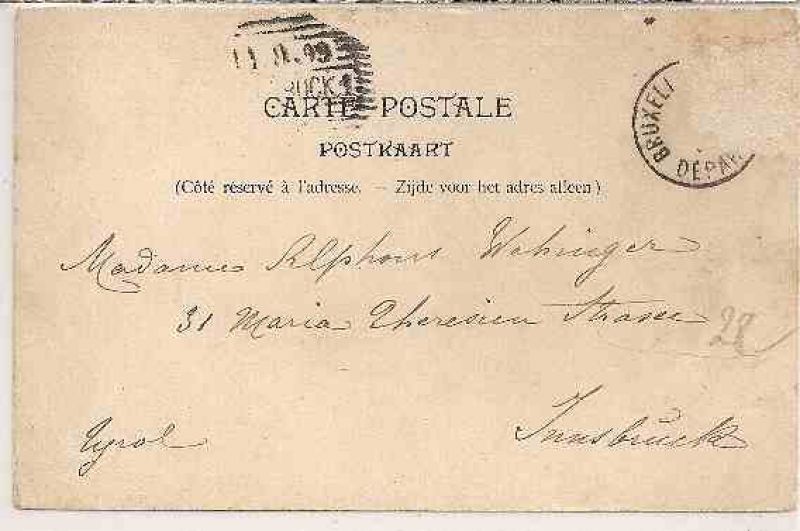 11 8.99
BRUXEL
DEPAR
CARTE POSTALE
POSTKAART
(Côté réservé à l'adresse. — Zijde voor het adres alleen)
Madame Alphons Wohinger
31 Maria Theresien Strasse 28
Tyrol
Innsbrück